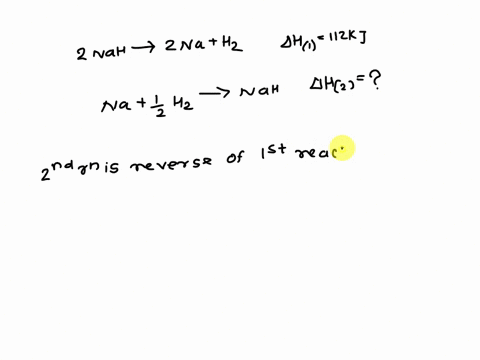 2 NaH → 2 Na + H₂ ΔH₍₁₎ = 112KJ
Na + 1/2 H₂ → NaH ΔH₍₂₎ = ?
2nd rn is reverse of 1st reac